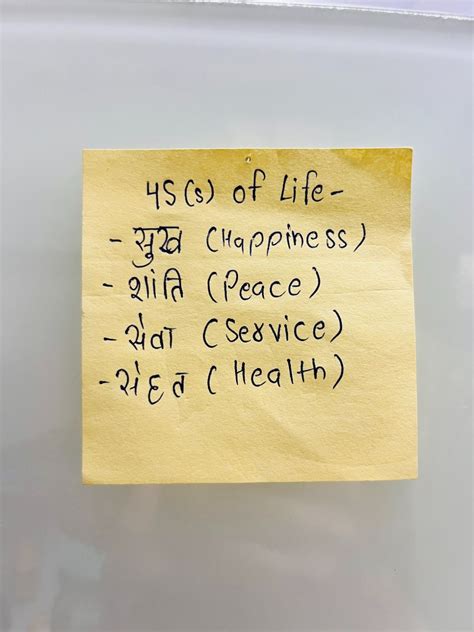 4S(s) of Life -
- सुख (Happiness)
- शांति (Peace)
- सेवा (Service)
- सेहत (Health)